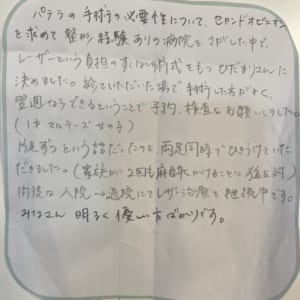 パテラの手術の必要性について、セカンドオピニオン
を求めて整形経験ありの病院をさがした中で
レーザーという負担の
決めました。診ていただいた場で手術した方がよく、
翌週ならできるということで予約、検査をお願いしました。
(1才 マルチーズ 女の子)
片足ずつという話だったのを、両足同時でひきうけていた
だきました。(家族が2回も麻酔かけることに猛反対)
術後は入院→通院にてレーザー治療を継続中です。
明るく優しい方ばかりです。